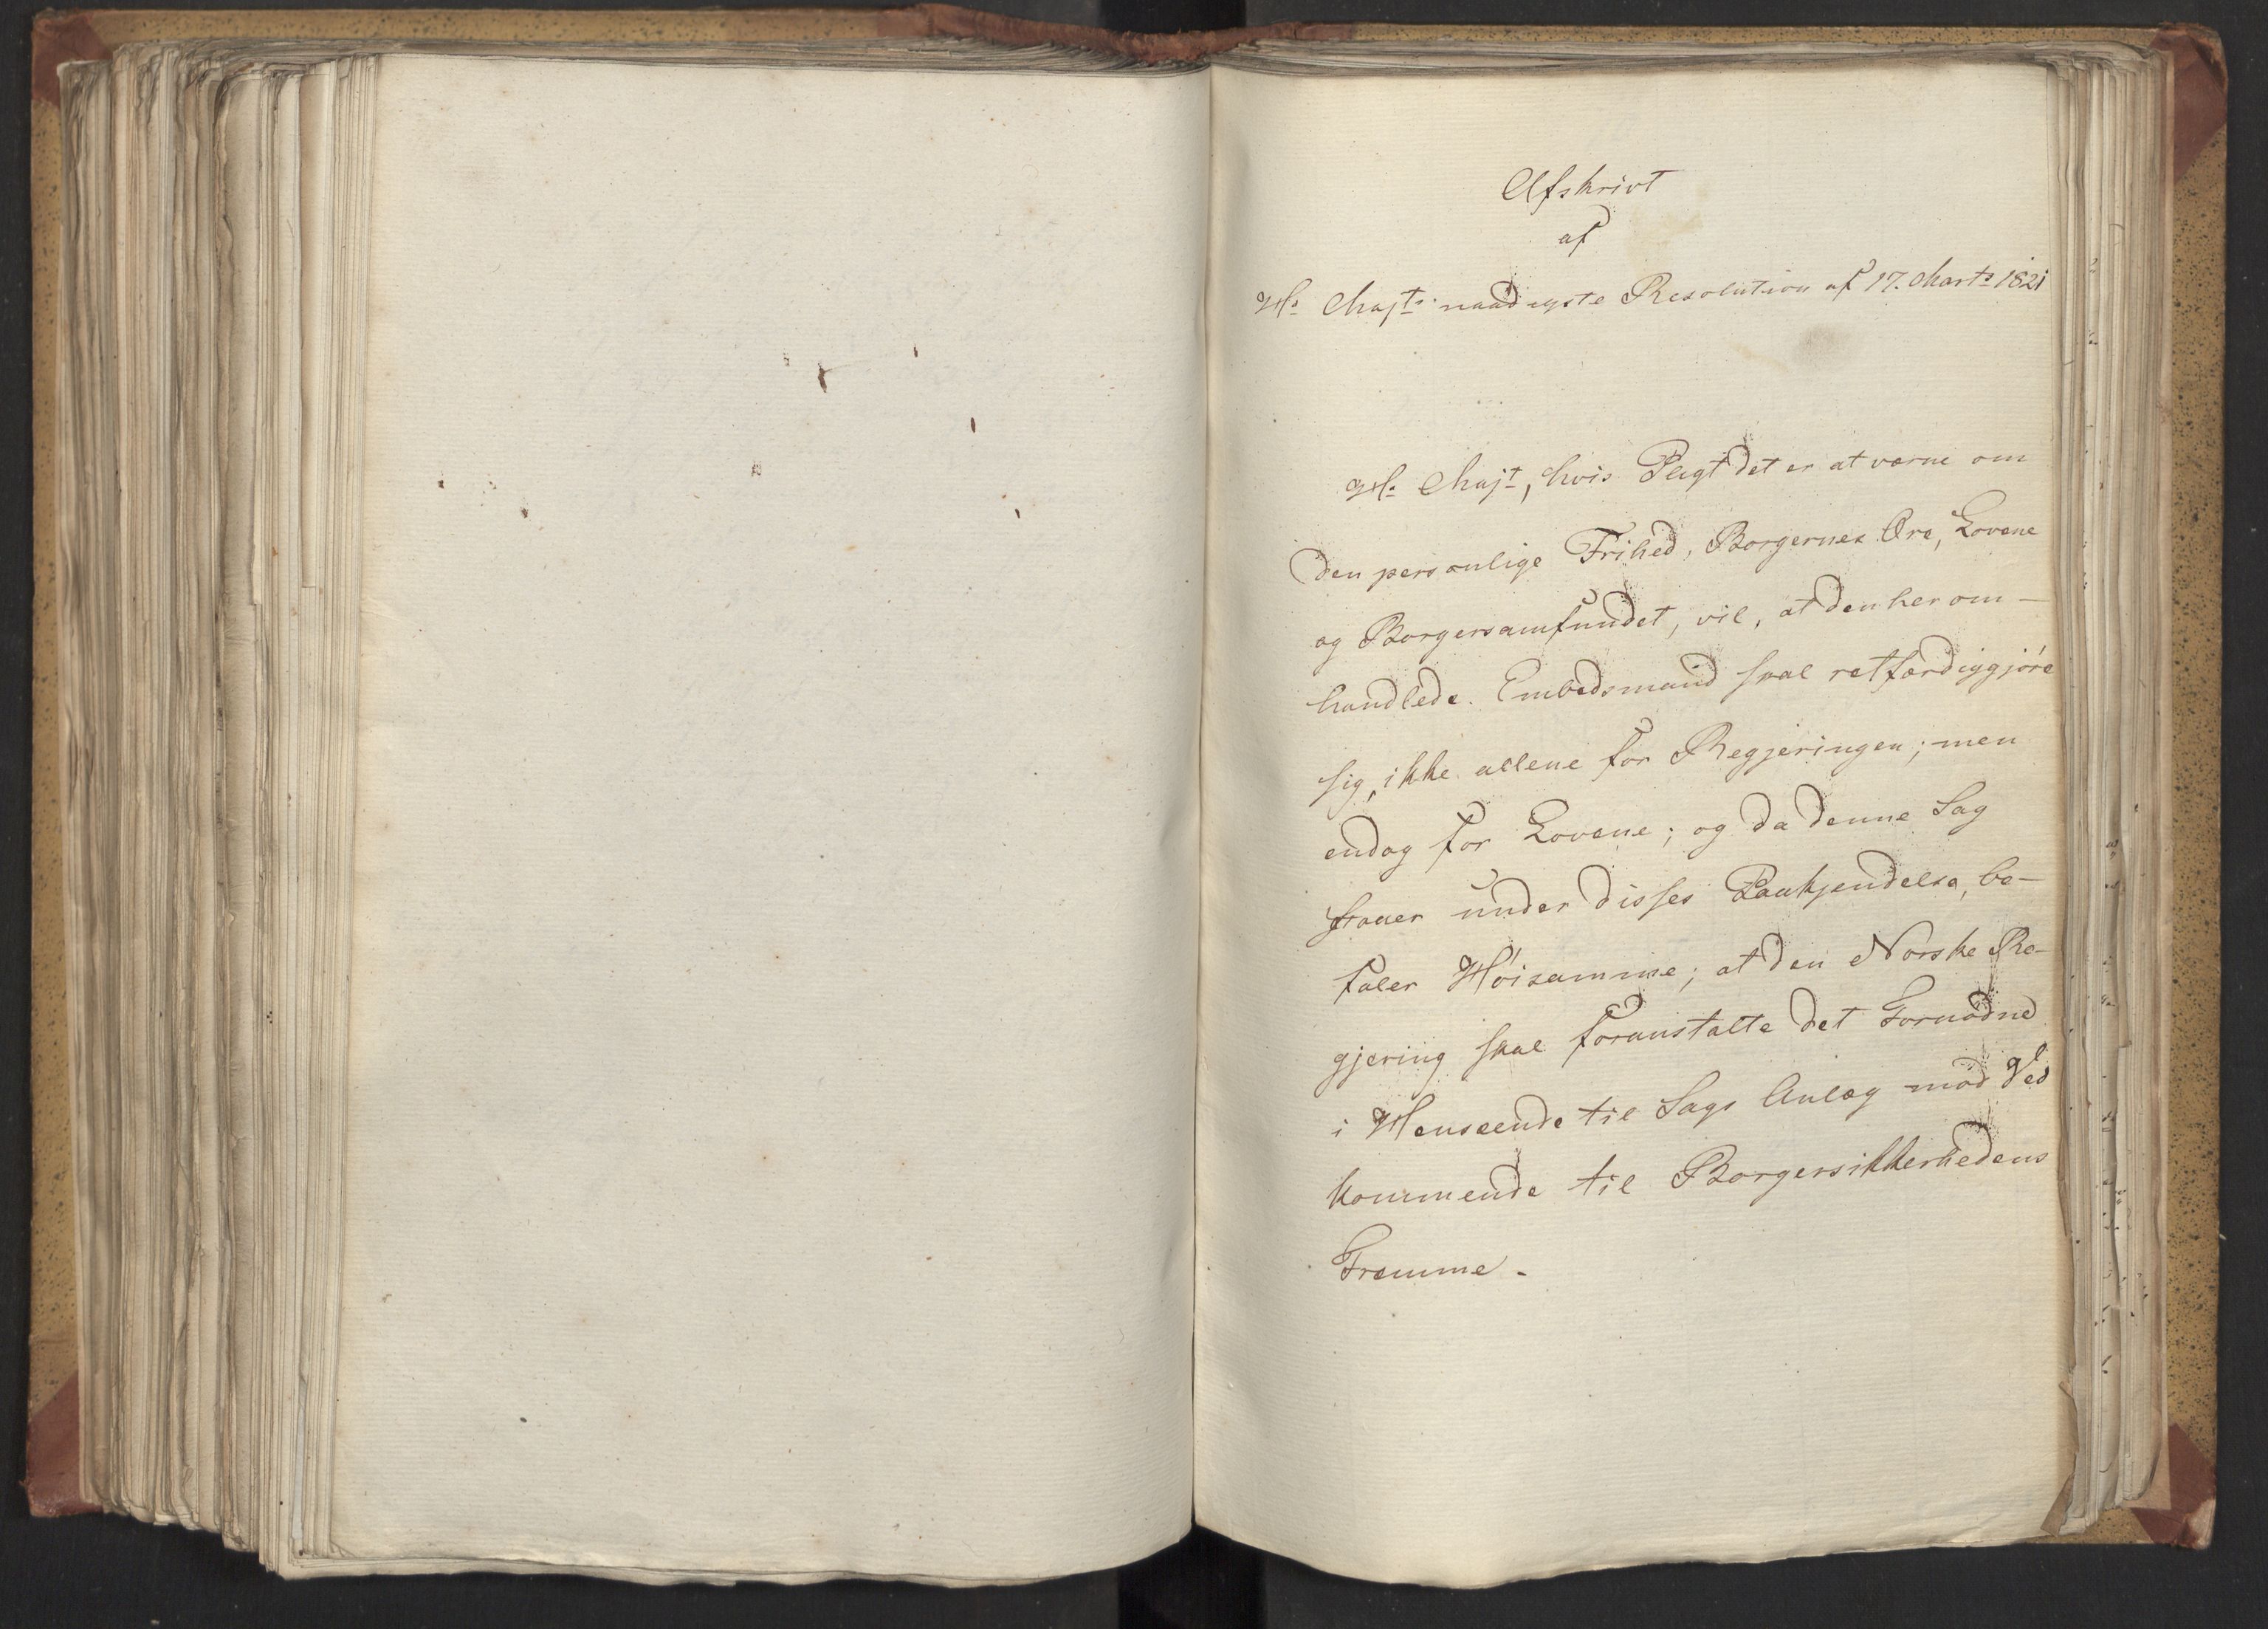 Afskrivt
af
Hs Majts naadigste Resolution af 17. Marts 1821
Hs Majt, hvis Pligt det er at værne om
den personlige Frihed, Borgernes Ære, Lovene
og Borgersamfundet, vil, at den her om-
handlede Embedsmand skal retfærdiggjøre
sig, ikke allene for Regjeringen; men
endog for Lovene; og da denne Sag
staaer under disses Paakjendelse, be-
faler Høisamme; at den Norske Re-
gjering skal foranstalte det Fornødne
i Henseende til Sags Anlæg mod Ved
kommende til Borgersikkerhedens
Fremme.